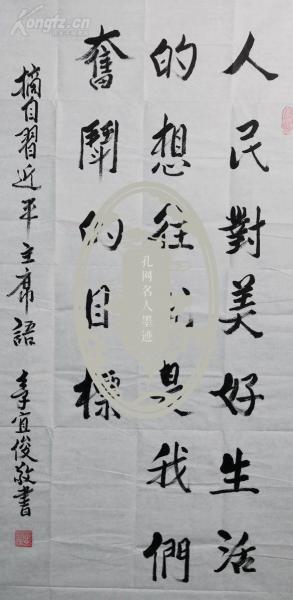 人民對美好生活
的想往就是我們
奮鬥的目標
摘自習近平主席語
宜俊敬書
孔网名人墨迹